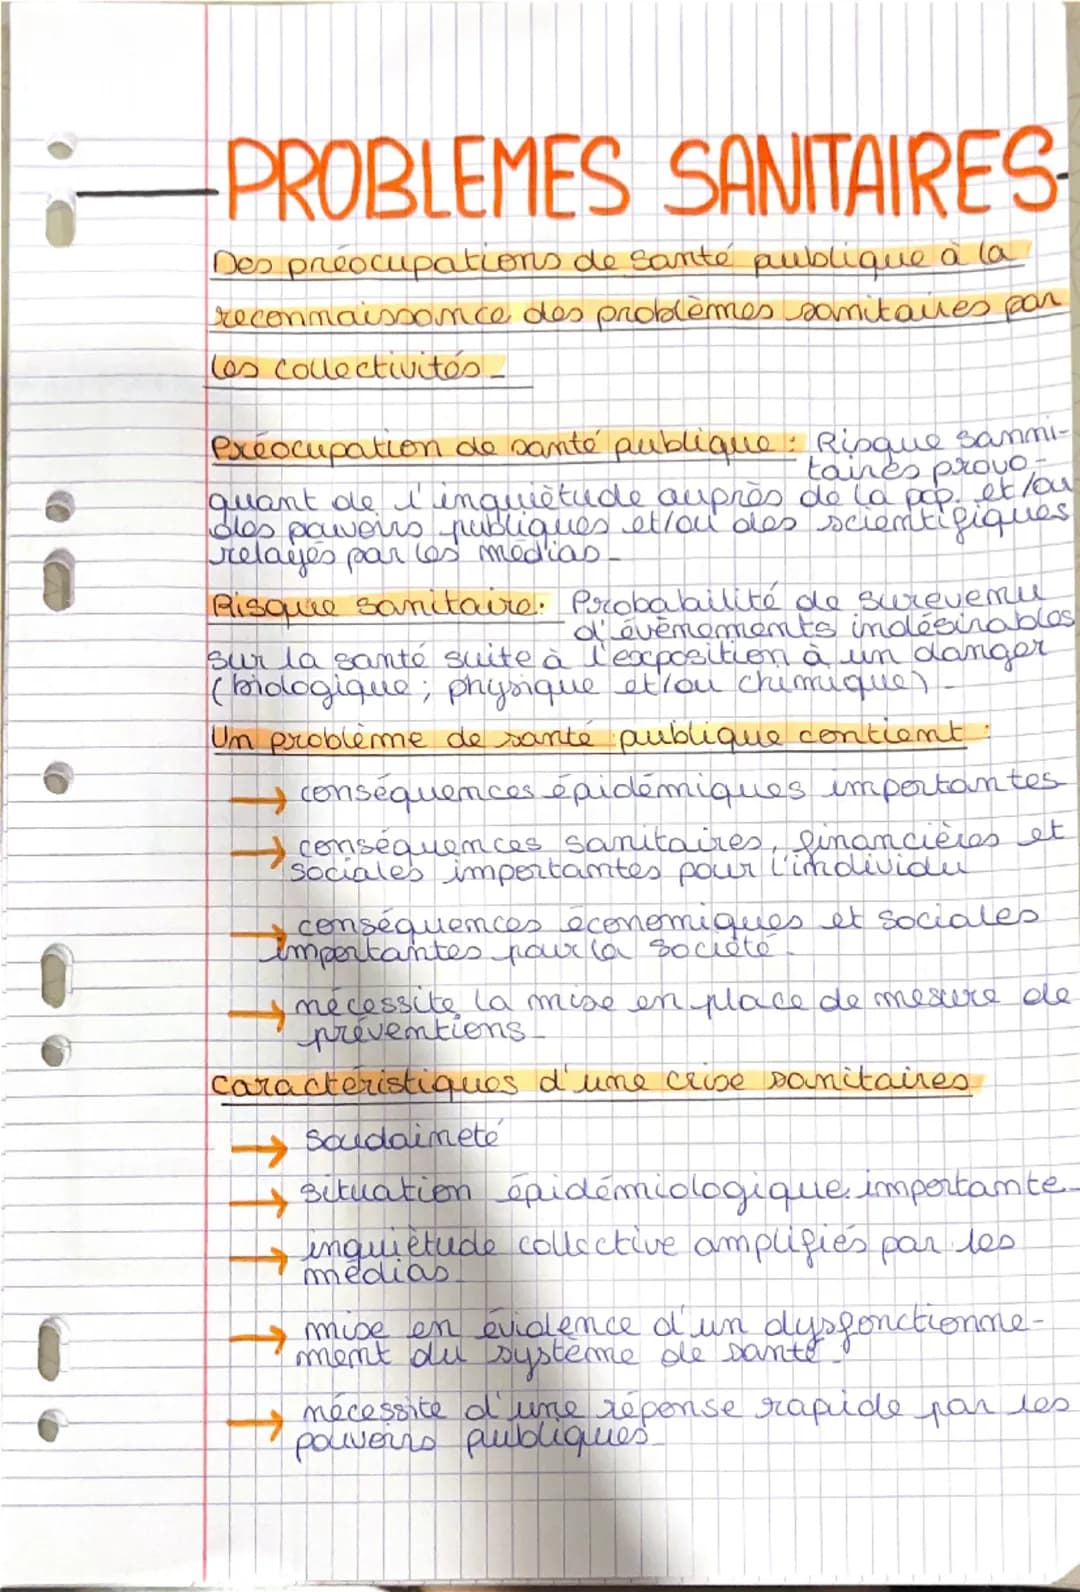 PROBLEMES SANITAIRES
Des préocupations de santé publique à la
reconnaissance des problèmes sanitaires par
les collectivités
Préocupation de santé publique : Risque sanni-
taires provo-
quant de l'inquiètude auprès de la pop. et/ou
des pouvoirs publiques et/ou des scientifiques
relayés par les médias
Risque sanitaire : Probabailité de surevenu
d'évènements indésirables
sur la santé suite à l'exposition à un danger
(biologique ; physique et/ou chimique)
Un problème de santé publique contient :
→ conséquences épidémiques importantes
→ conséquences sanitaires, financières et
sociales importantes pour l'individu
→ conséquences économiques et sociales
importantes pour la société
→ nécessite la mise en place de mesure de
préventions
caractéristiques d'une crise sanitaires
→ soudaineté
→ situation épidémiologique importante
→ inquiètude collective amplifiés par les
médias
→ mise en évidence d'un dysfonctionne-
ment du système de santé
→ nécessite d'une réponse rapide par les
pouvoirs publiques